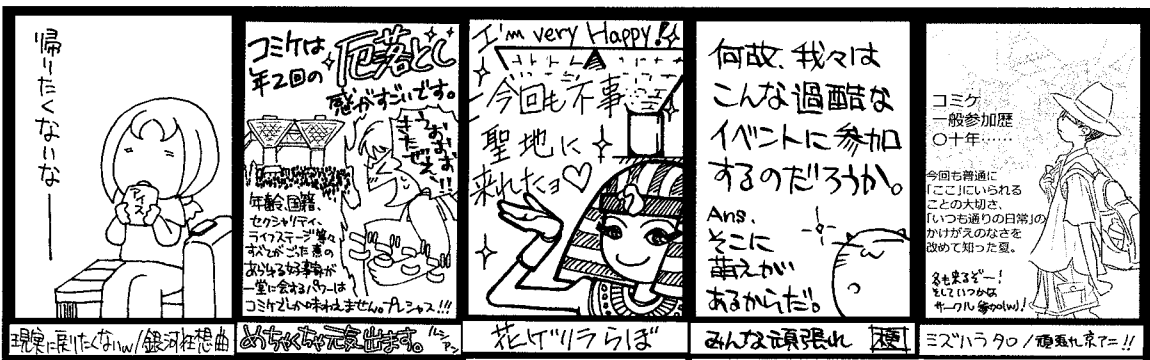 帰りたくないなー
アイス
現実に戻りたくないw/銀河狂想曲
コミケは
年2回の
厄落とし
感がすごいです。
うおおお
きたぜぇ!!
年齢、国籍、
セクシャリティ、
ライフステージ等々
すべてがごった煮の
あらゆる好事家が
一堂に会するパワーは
コミケでしか味わえません。プレシャス!!!
めちゃくちゃ元気出ます。
I'm very Happy!
今回も不事
聖地に
来れたョ♡
花ゲリラらぼ
何故、我々は
こんな過酷な
イベントに参加
するのだろうか。
Ans.
そこに
萌えが
あるからだ。
みんな頑張れ
コミケ
一般参加歴
〇十年……
今回も普通に
「ここ」にいられる
ことの大切さ、
「いつも通りの日常」の
かけがえのなさを
改めて知った夏。
冬も来るぞー!
そしていつかな
サークル参加(lw)!
ミズハラタロ/頑張れ京アニ!!